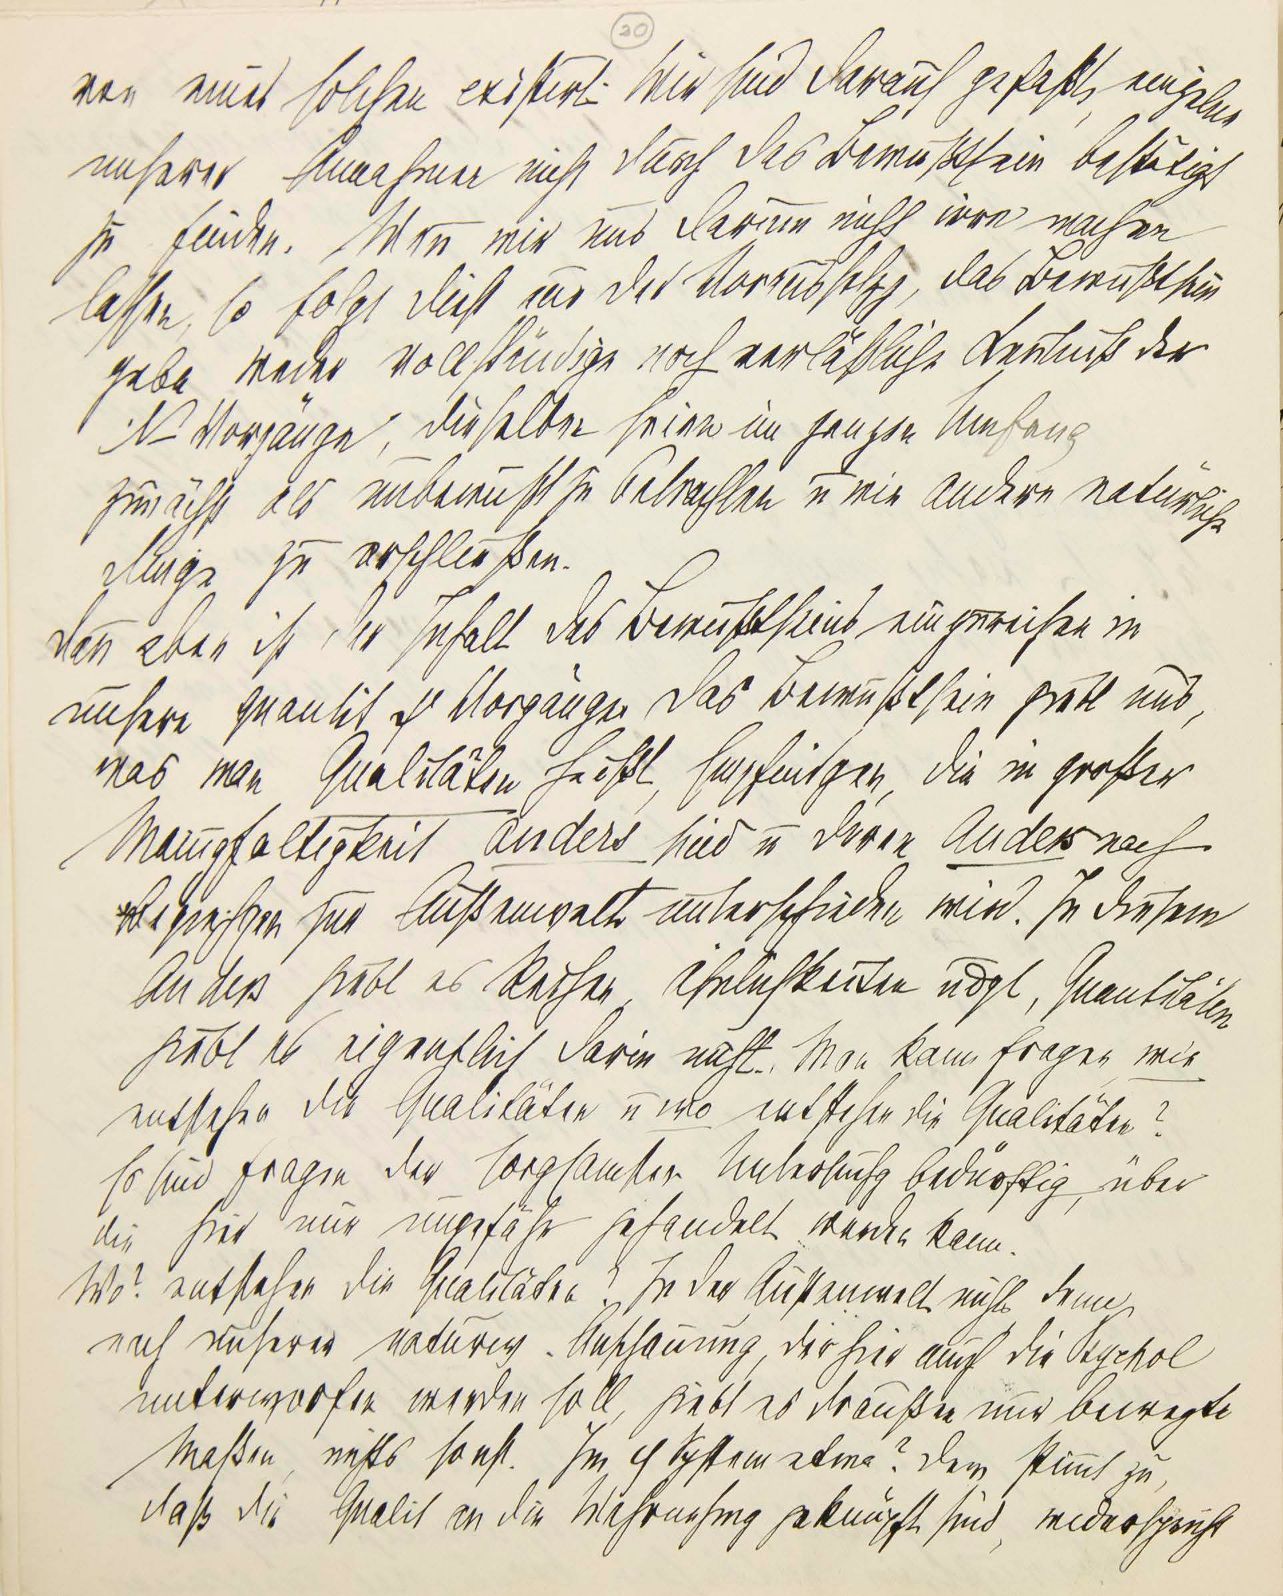 20
von einer solchen existirt. Wir sind darauf gefaßt, einzelne
unserer Annahmen nicht durch das Bewußtsein bestätigt
zu finden. Weñ wir uns darum nicht irre machen
lassen, so folgt dieß aus der Voraussetzg, das Bewußtsein
gebe weder vollständige noch verläßliche Kentniß der
N Vorgänge, dieselben seien im ganzen Umfang
zunächst als unbewußt zu betrachten u wie andere natürliche
Dinge zu erschließen.
Dañ aber ist der Inhalt des Bewußtseins einzureihen in
unsere quantit ψ Vorgänge. Das Bewußtsein giebt uns,
was man Qualitäten heißt, Empfindgen, die in großer
Manigfaltigkeit anders sind u deren Anders nach
Beziehgen zur Außenwelt unterschieden wird. In diesem
Anders giebt es Reihen, Änlichkeiten udgl, Quantitäten
giebt es eigentlich darin nicht. Man kann fragen wie
entstehen die Qualitäten u wo entstehen die Qualitäten?
Es sind Fragen der sorgsamsten Untersuchg bedürftig, über
die hier nur ungefähr gehandelt werden kann.
Wo? entstehen die Qualitäten? In der Außenwelt nicht, denn
nach unserer naturw. Anschauung, der hier auch die Psychol
unterworfen werden soll, giebt es draußen nur bewegte
Maßen, nichts sonst. Im ψ System etwa? Dem stimt zu,
daß die Qualit an die Wahrnehmg geknüpft sind, widerspricht